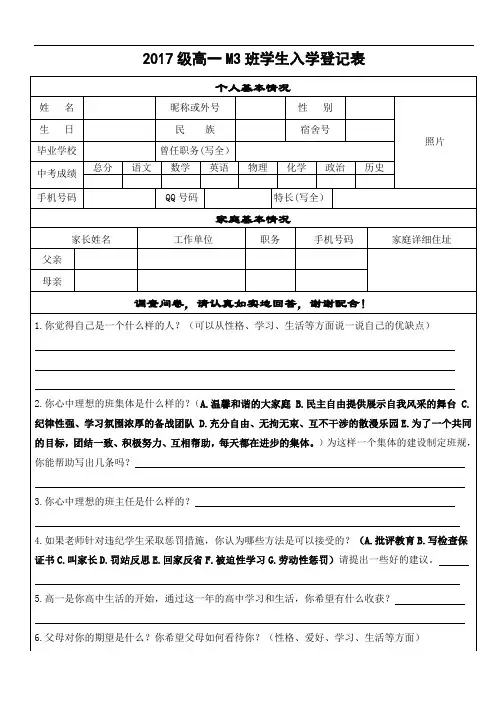 2017级高一M3班学生入学登记表
个人基本情况
姓 名 昵称或外号 性 别 照片
生 日 民 族 宿舍号
毕业学校 曾任职务(写全)
中考成绩 总分 语文 数学 英语 物理 化学 政治 历史
手机号码 QQ号码 特长(写全)
家庭基本情况
家长姓名 工作单位 职务 手机号码 家庭详细住址
父亲
母亲
调查问卷，请认真如实地回答，谢谢配合！
1.你觉得自己是一个什么样的人？（可以从性格、学习、生活等方面说一说自己的优缺点）
2.你心中理想的班集体是什么样的？（A.温馨和谐的大家庭 B.民主自由提供展示自我风采的舞台 C.
纪律性强、学习氛围浓厚的备战团队 D.充分自由、无拘无束、互不干涉的散漫乐园 E.为了一个共同
的目标，团结一致、积极努力、互相帮助，每天都在进步的集体。）为这样一个集体的建设制定班规，
你能帮助写出几条吗？
3.你心中理想的班主任是什么样的？
4.如果老师针对违纪学生采取惩罚措施，你认为哪些方法是可以接受的？（A.批评教育B.写检查保
证书C.叫家长D.罚站反思E.回家反省F.被迫性学习G.劳动性惩罚）请提出一些好的建议。
5.高一是你高中生活的开始，通过这一年的高中学习和生活，你希望有什么收获？
6.父母对你的期望是什么？你希望父母如何看待你？（性格、爱好、学习、生活等方面）